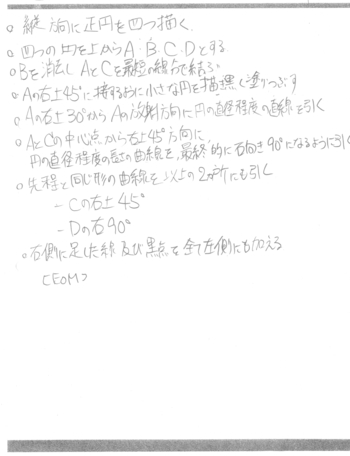 ○ 縦方向に正円を四つ描く
○ 四つの円を上からA.B.C.Dとする
○ Bを消しAとCを最短の線分で結ぶ
○ Aの右上45°に接するように小さな円を描き黒く塗りつぶす
○ Aの右上30°からAの放射方向に円の直径程度の直線を引く
○ AとCの中心点から右上45°方向に
円の直径程度の長さの曲線を、最終的に右向き90°になるように引く
○ 先程と同じ形の曲線を以上の2ヶ所にも引く
- Cの右上45°
- Dの右90°
○ 右側に足した線及び黒点を全て左側にも加える
(EOM)